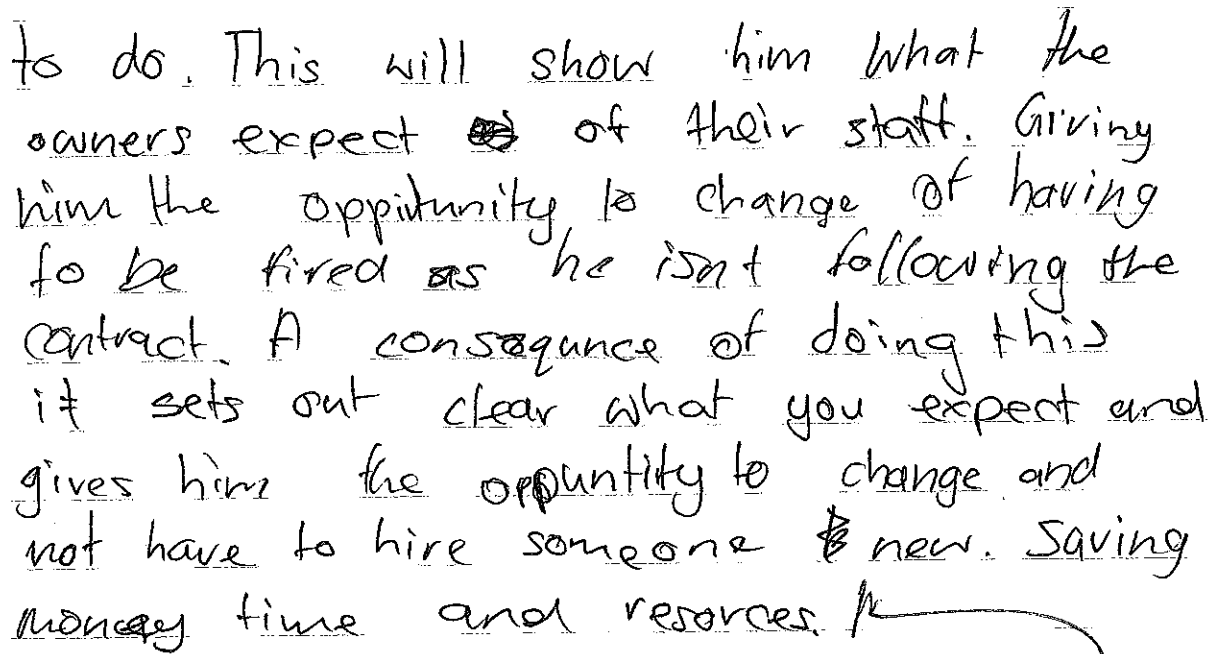 to do. This will show him what the
owners expect of their staff. Giving
him the oppitunity to change of having
to be fired as he isnt following the
contract. A consequnce of doing this
it sets out clear what you expect and
gives him the oppuntity to change and
not have to hire someone new. Saving
money time and resorces.